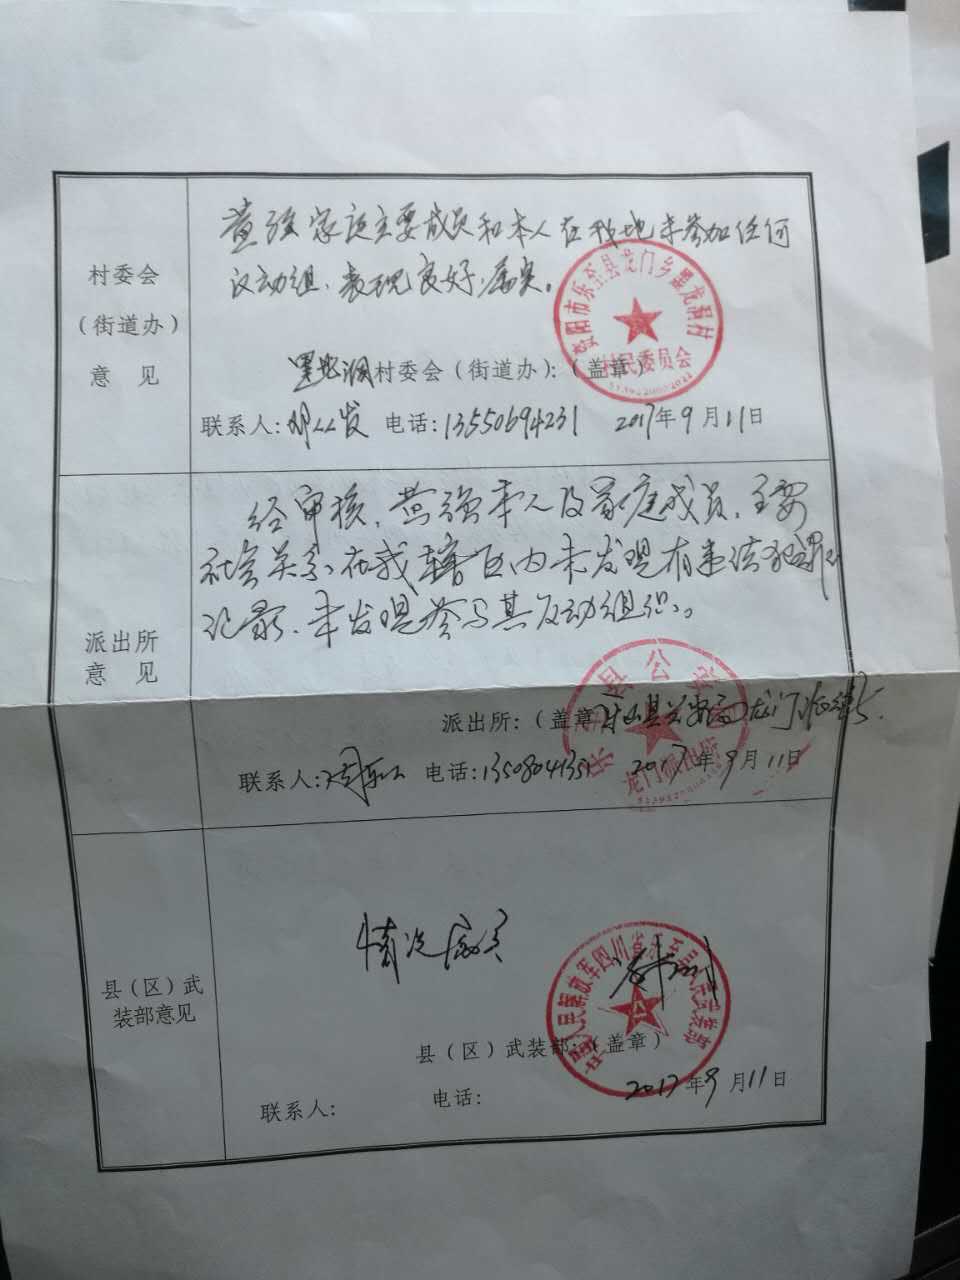 村委会
（街道办）
意 见
黄强家庭主要成员和本人在我地未参加任何
反动组、表现良好，属实。
资阳市乐至县龙门乡黑龙洞村
村民委员会
黑龙洞村委会（街道办）：（盖章）
联系人： 电话：13550694231 2017年9月11日
派出所
意 见
经审核，黄强本人及家庭成员、主要
社会关系在我辖区内未发现有违法犯罪
记录、未发现参与其反动组织。
派出所：（盖章）
联系人： 电话：13508041351 2017年9月11日
县（区）武
装部意见
情况属实
中国人民解放军四川省乐至县人民武装部
县（区）武装部：（盖章）
2017年9月11日
联系人： 电话：